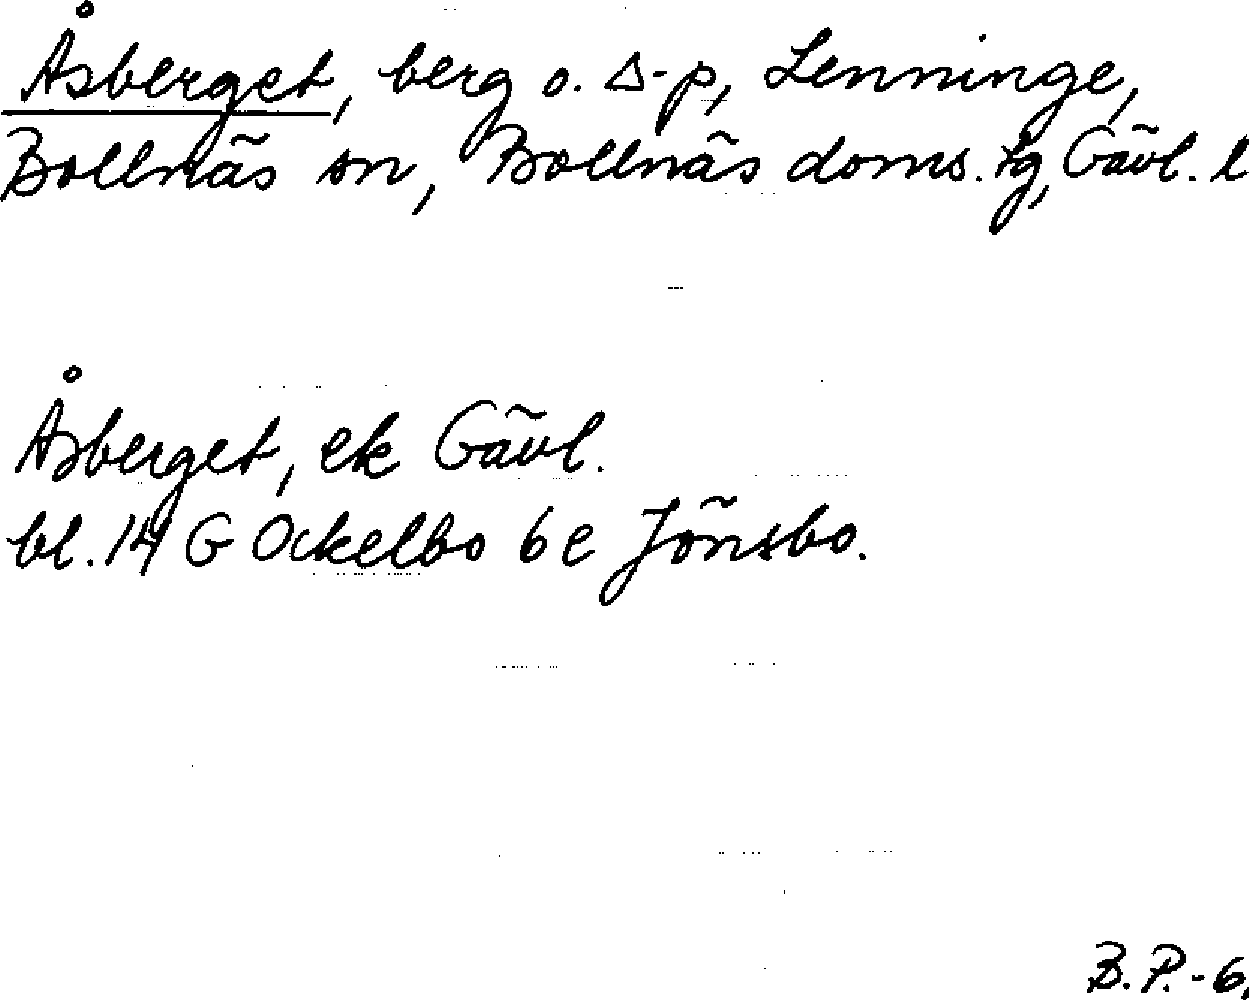 Åsberget, berg o. Δ-p, Lenninge,
Bollnäs sn, Bollnäs doms. tg, Gävl. l
Åsberget, ek Gävl.
bl. 14 G Ockelbo 6e Jönsbo.
B.P.-6